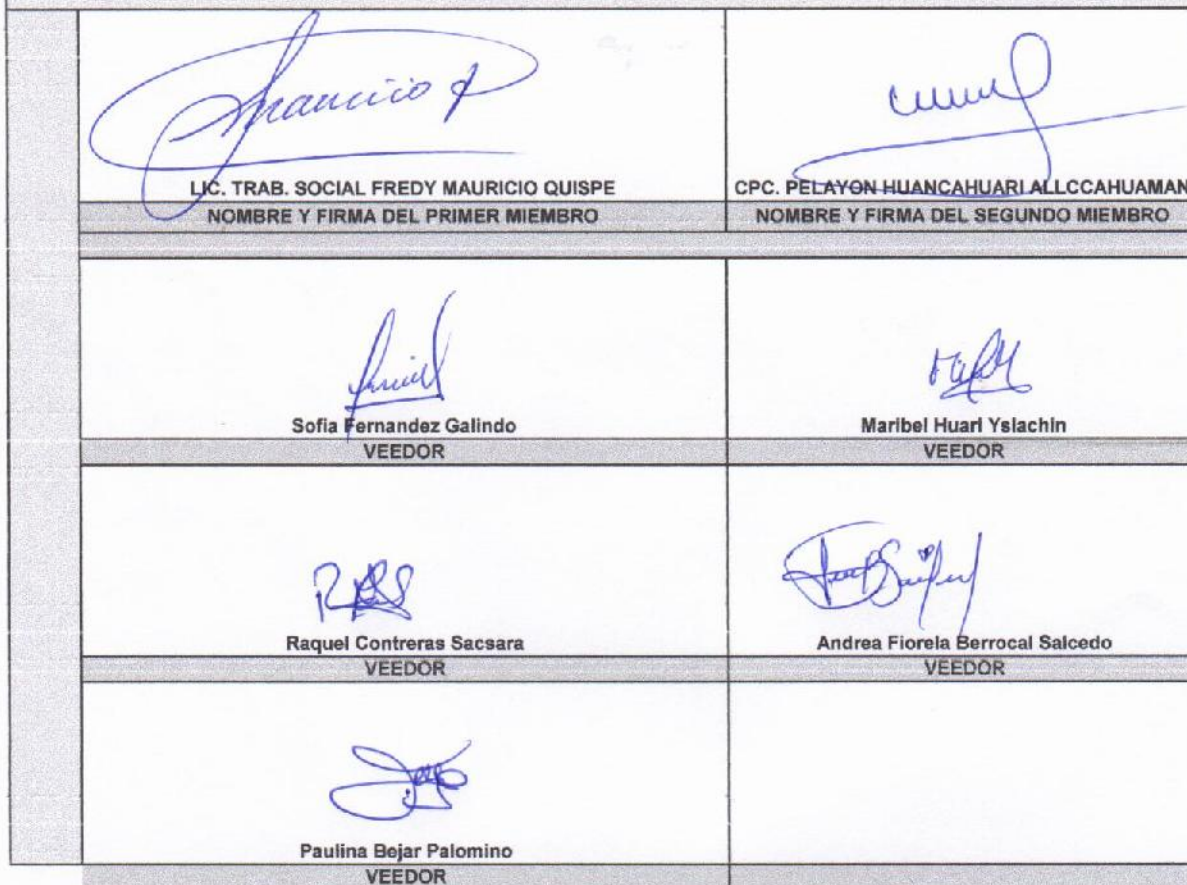 LIC. TRAB. SOCIAL FREDY MAURICIO QUISPE
CPC. PELAYON HUANCAHUARI ALLCCAHUAMAN
NOMBRE Y FIRMA DEL PRIMER MIEMBRO
NOMBRE Y FIRMA DEL SEGUNDO MIEMBRO
Sofia Fernandez Galindo
Maribel Huari Yslachin
VEEDOR
VEEDOR
Raquel Contreras Sacsara
Andrea Fiorela Berrocal Salcedo
VEEDOR
VEEDOR
Paulina Bejar Palomino
VEEDOR